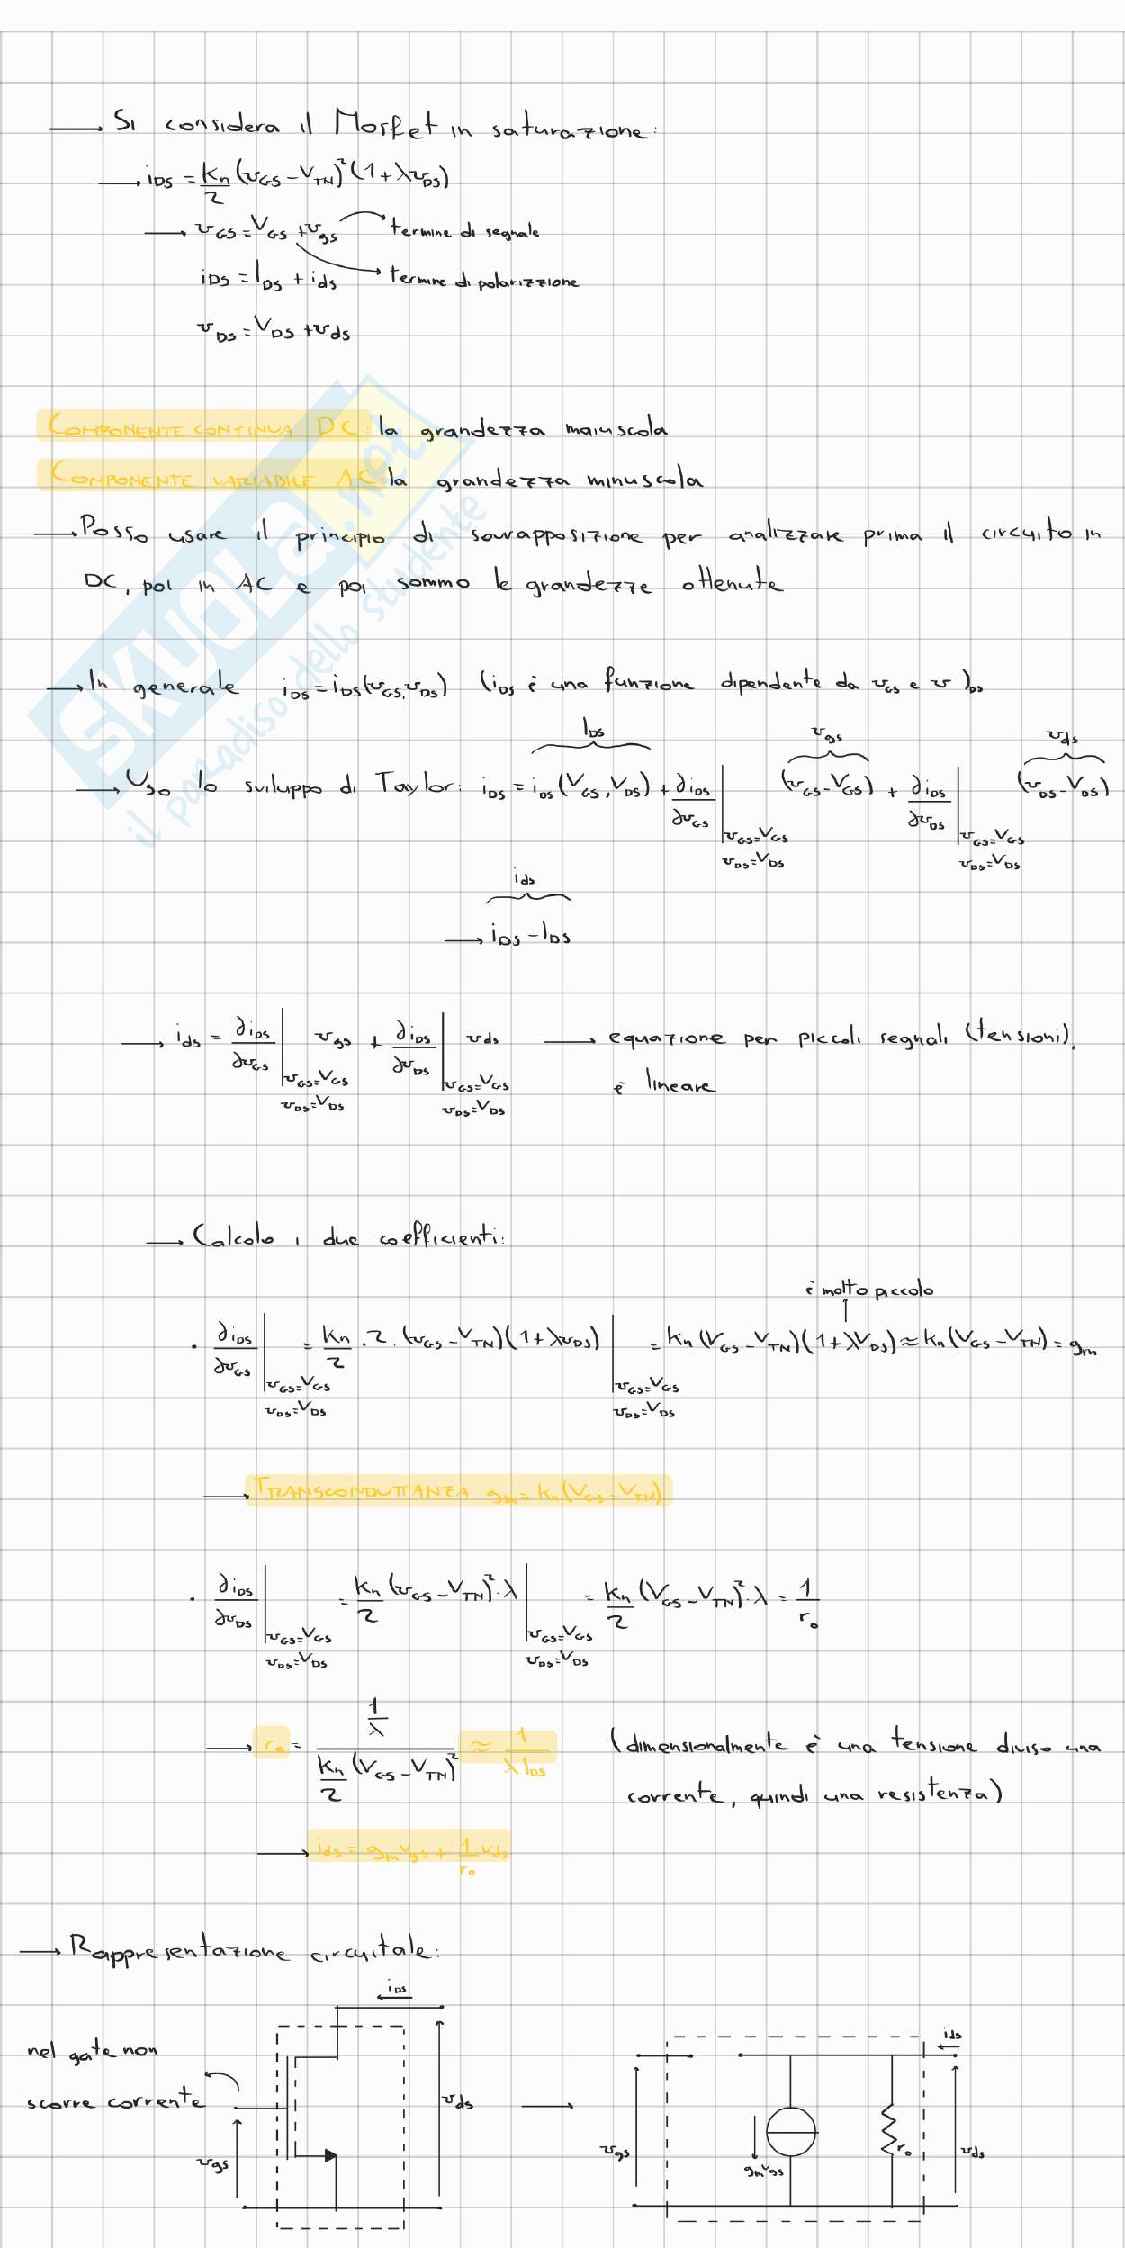 → Si considera il Mosfet in saturazione:
→ iDS = Kn/2 (vGS - VTN)² (1 + λvDS)
→ vGS = VGS + vgs → termine di segnale
iDS = IDS + ids → termine di polarizzione
vDS = VDS + vds
COMPONENTE CONTINUA DC: la grandezza maiuscola
COMPONENTE VARIABILE AC: la grandezza minuscola
→ Posso usare il principio di sovrapposizione per analizzare prima il circuito in
DC, poi in AC e poi sommo le grandezze ottenute
SKUOLA.net
il paradiso dello studente
→ In generale iDS = iDS(vGS, vDS) (iDS è una funzione dipendente da vGS e vDS)
IDS vgs vds
→ Uso lo sviluppo di Taylor: iDS = iDS(VGS, VDS) + ∂iDS/∂vGS | (vGS - VGS) + ∂iDS/∂vDS | (vDS - VDS)
vGS = VGS vGS = VGS
vDS = VDS vDS = VDS
ids
→ iDS - IDS
→ ids = ∂iDS/∂vGS | vgs + ∂iDS/∂vDS | vds → equazione per piccoli segnali (tensioni),
vGS = VGS vGS = VGS è lineare
vDS = VDS vDS = VDS
→ Calcolo i due coefficienti:
è molto piccolo
· ∂iDS/∂vGS | = Kn/2 · 2 · (vGS - VTN)(1 + λvDS) | = Kn (VGS - VTN)(1 + λVDS) ≈ Kn (VGS - VTN) = gm
vGS = VGS vGS = VGS
vDS = VDS vDS = VDS
→ TRANSCONDUTTANZA gm = Kn (VGS - VTN)
· ∂iDS/∂vDS | = Kn/2 (vGS - VTN)² · λ | = Kn/2 (VGS - VTN)² · λ = 1/ro
vGS = VGS vGS = VGS
vDS = VDS vDS = VDS
→ ro = (1/λ) / (Kn/2 (VGS - VTN)²) ≈ 1/(λ IDS) (dimensionalmente è una tensione diviso una
corrente, quindi una resistenza)
→ ids = gm vgs + 1/ro vds
→ Rappresentazione circuitale:
iDS
nel gate non
scorre corrente
vgs
vds
→
ids
vgs
gm vgs
ro
vds